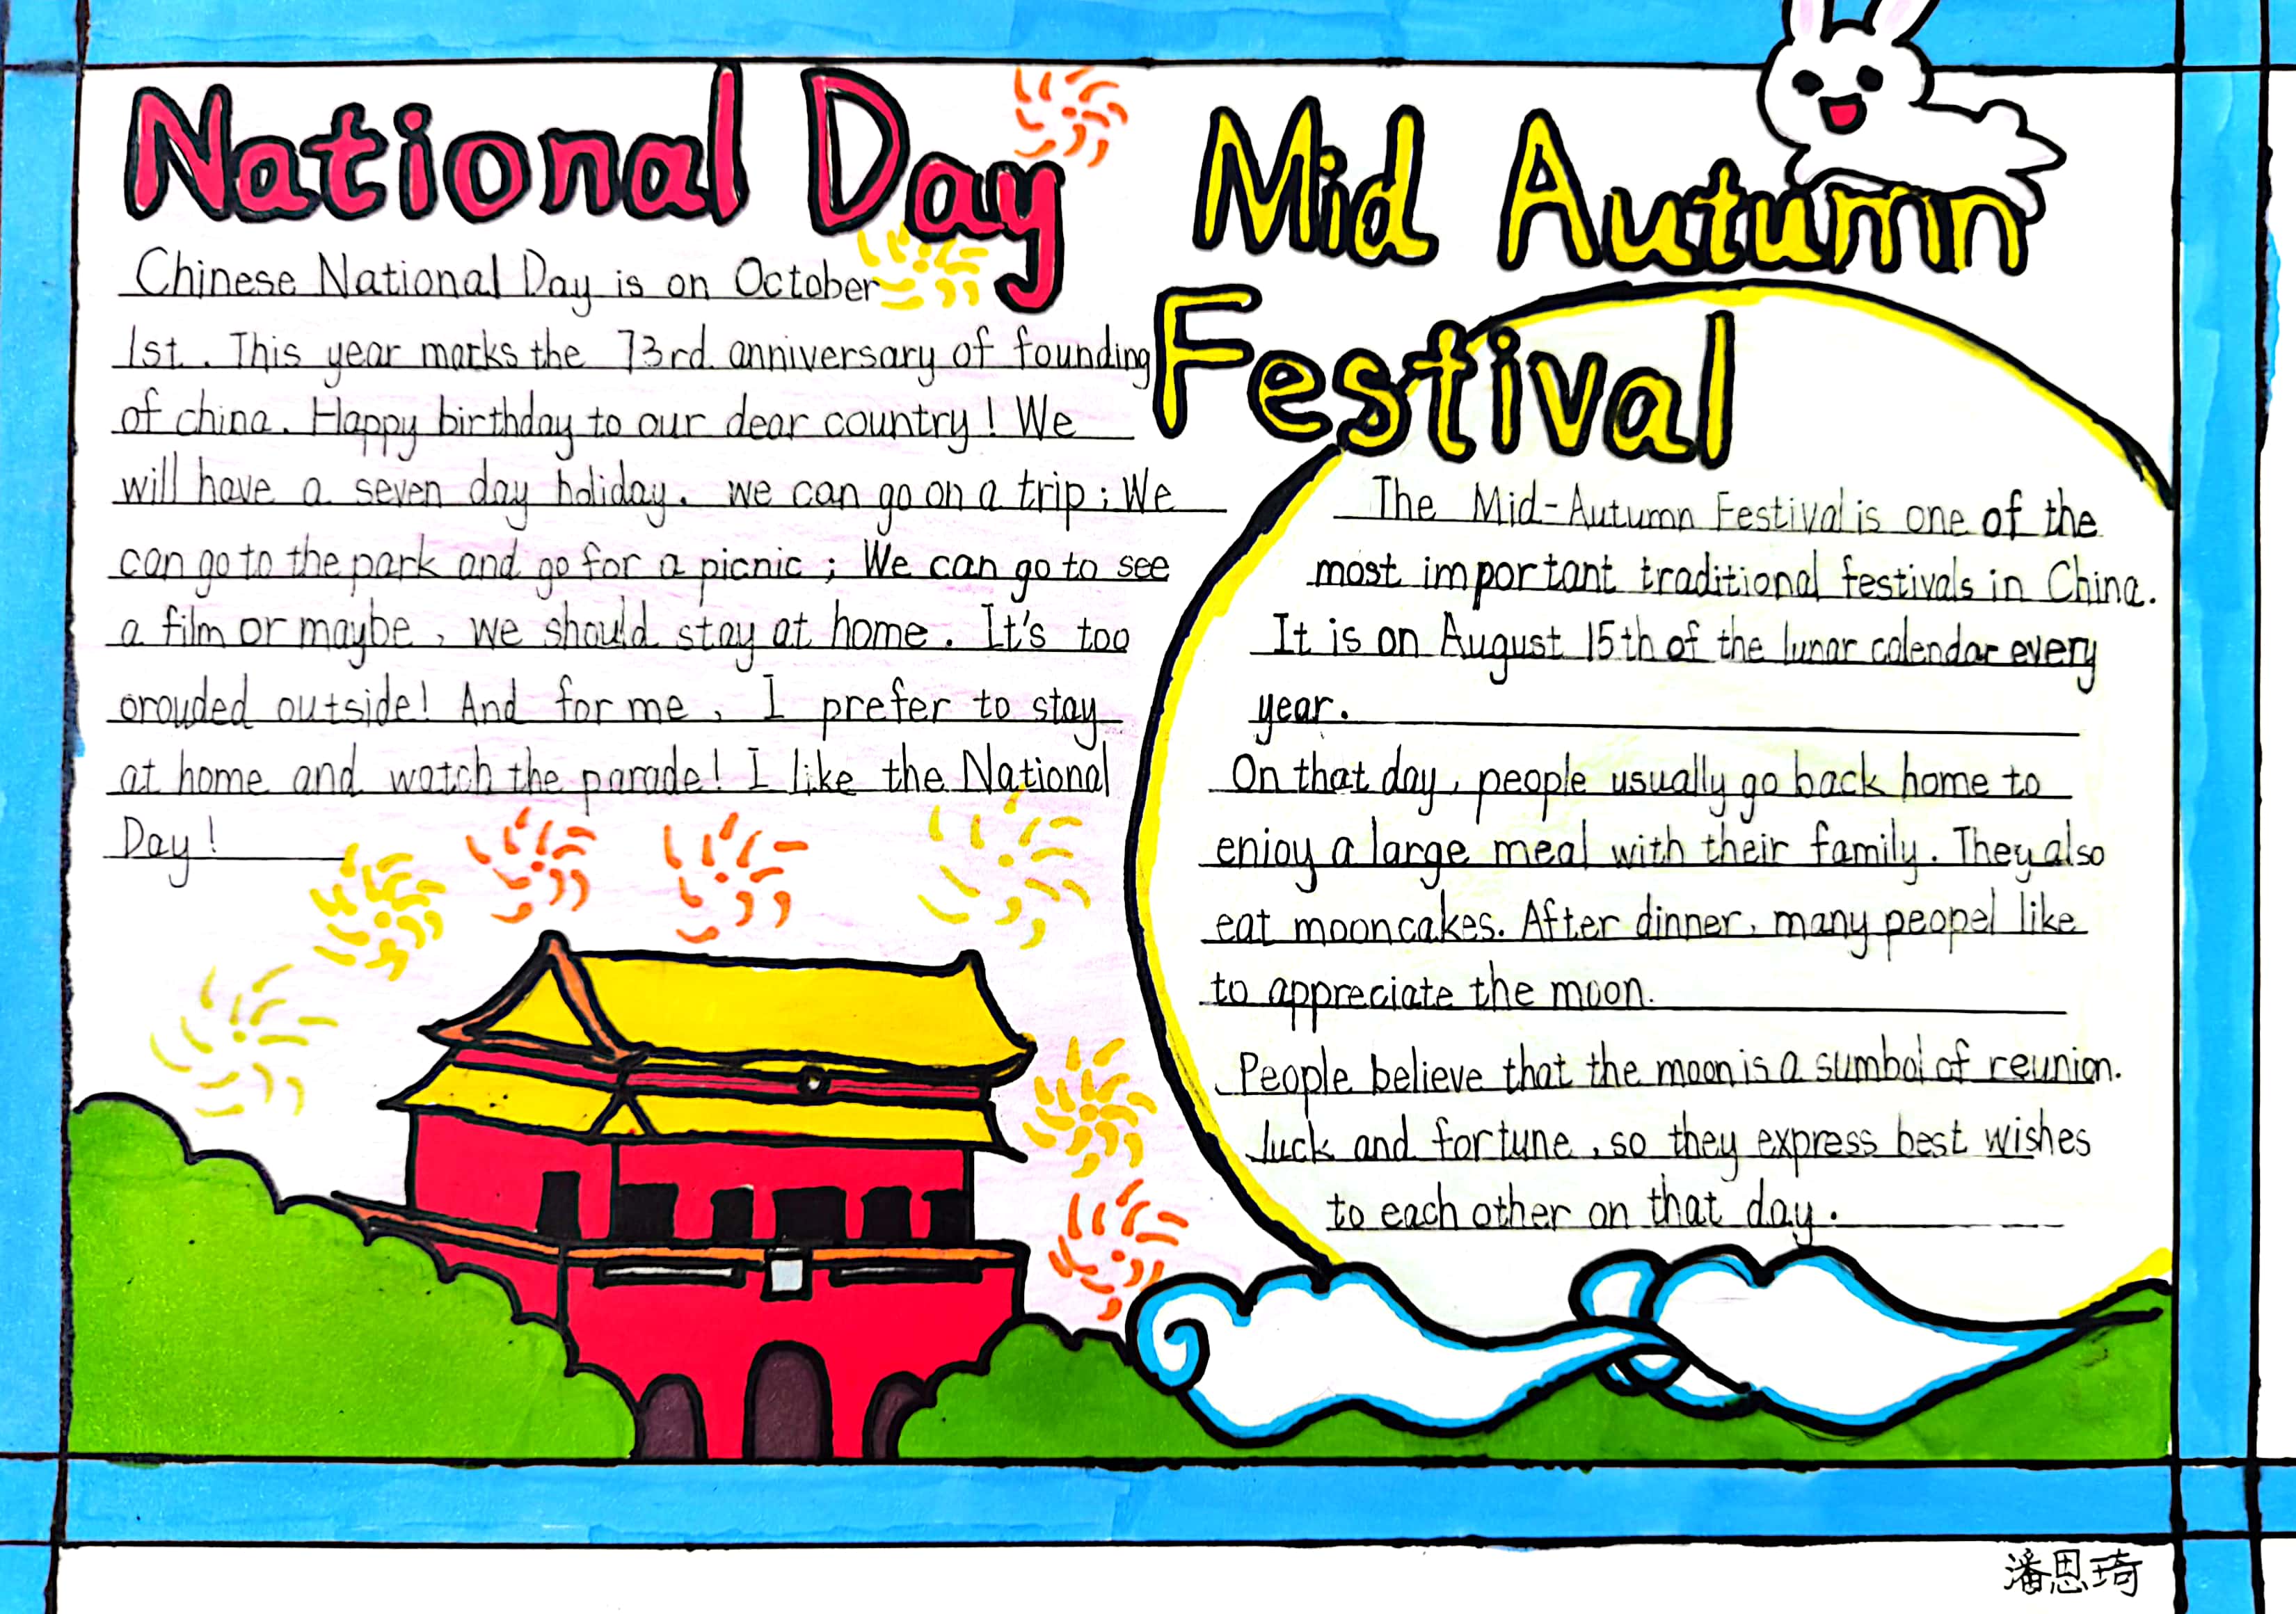 National Day
Chinese National Day is on October
1st. This year marks the 73rd anniversary of founding
of china. Happy birthday to our dear country! We
will have a seven day holiday. we can go on a trip; We
can go to the park and go for a picnic; We can go to see
a film or maybe, we should stay at home. It's too
orouded outside! And for me, I prefer to stay
at home and watch the parade! I like the National
Day!
Mid Autumn
Festival
The Mid-Autumn Festival is one of the
most important traditional festivals in China.
It is on August 15th of the lunar calendar every
year.
On that day, people usually go back home to
enjoy a large meal with their family. They also
eat mooncakes. After dinner, many peopel like
to appreciate the moon.
People believe that the moon is a sumbol of reunion.
luck and fortune, so they express best wishes
to each other on that day.
潘恩琦